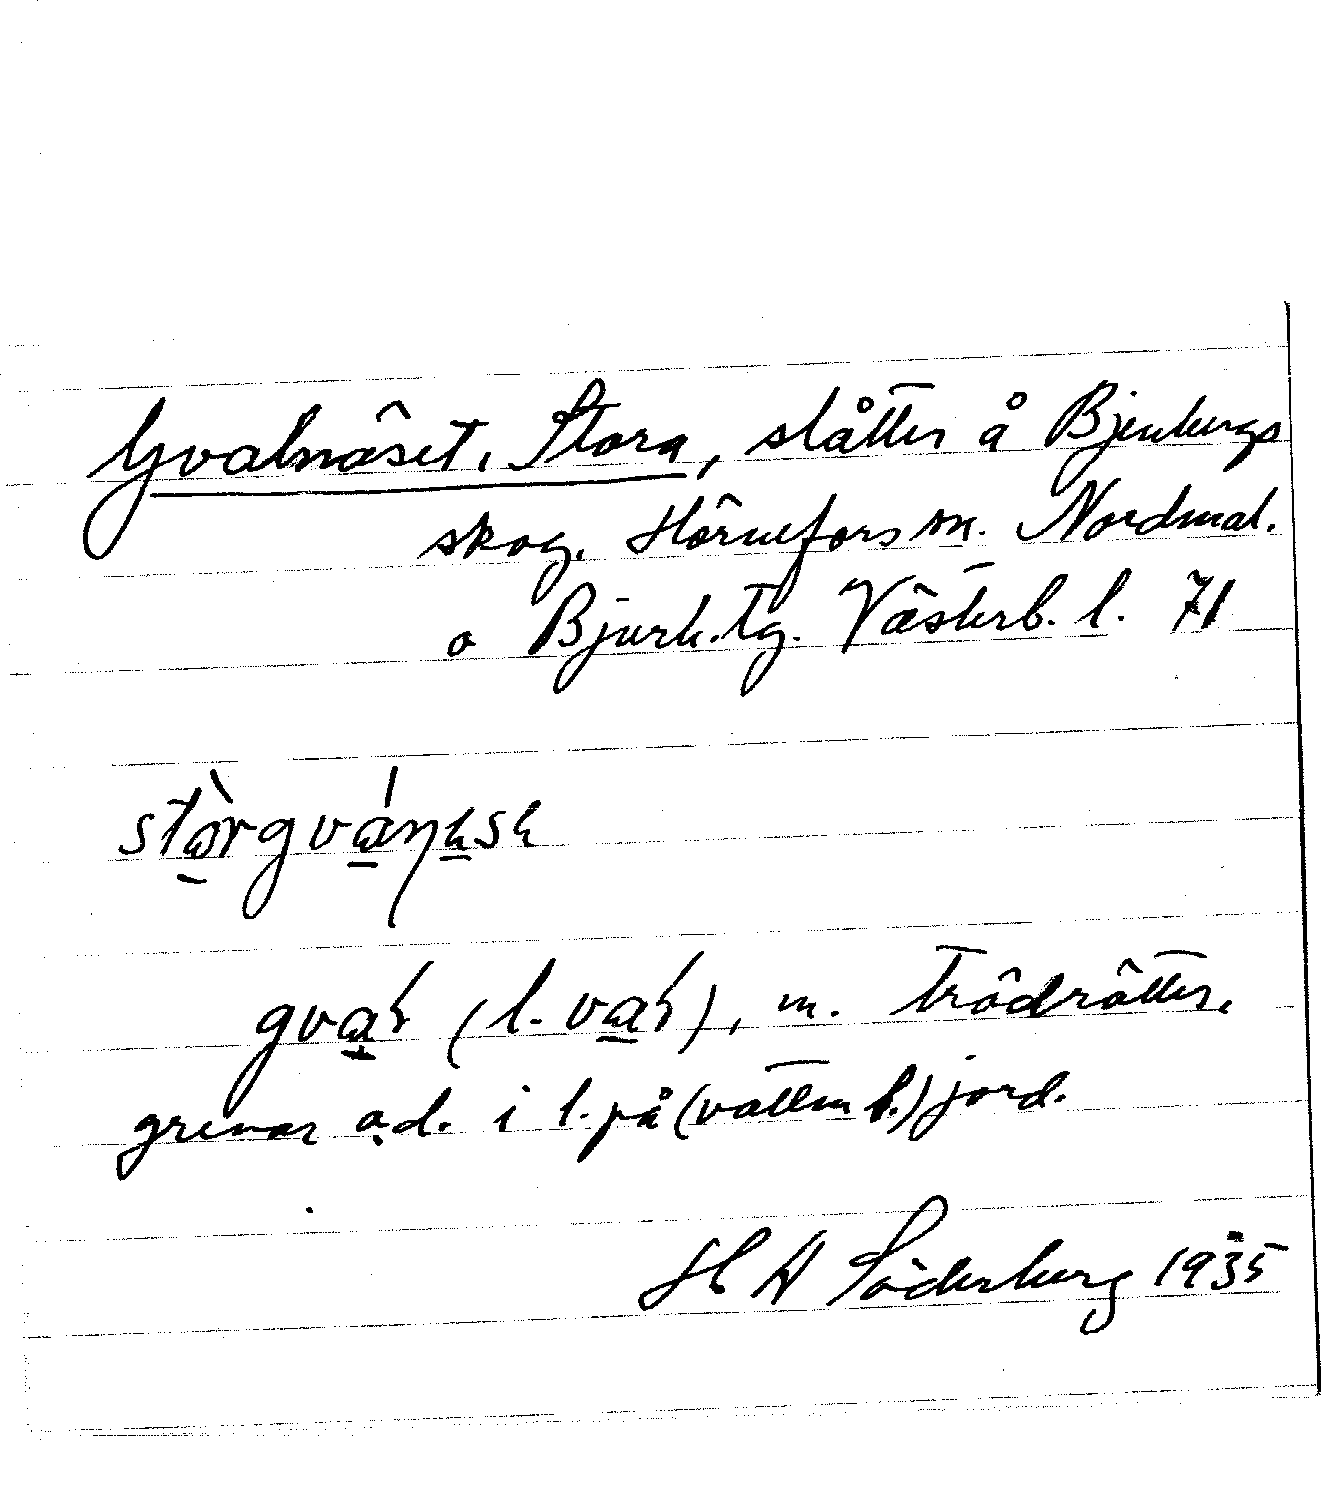 Gvalnäset, Stora, slåtter å Bjenbergs
skog. Hörnefors sn. Nordmal.
o Bjurh. tg. Västerb. l. 71
gva (l. va), m. trädrötter,
grenar o.d. i l. på (vatten l.) jord.
H A Söderberg 1935